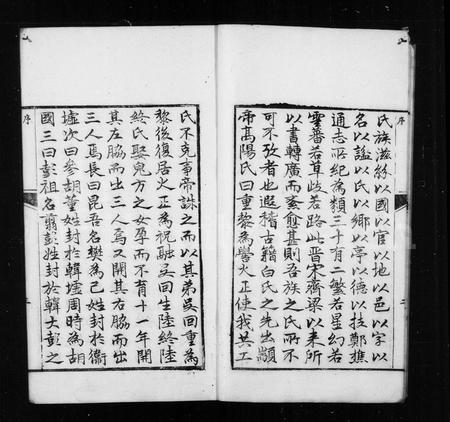 序
氏族滋紛以國以官以地以邑以字以
名以謚以氏以鄉以亭以德以技鄭樵
通志所紀為類三十有二繁若星幻若
雲蕃若草歧若路此晋宋齊梁以来所
以書轉廣而紊愈甚則吾族之氏所不
可不攷者也遐稽古籍白氏之先出顓
帝高陽氏曰重黎為嚳火正使我共工
氏不克事帝誅之而以其弟吳回重為
黎後復居火正為祝融吳回生陸終陸
終氏娶鬼方之女孕而不育十一年開
其左脇而出三人焉又開其右脇而出
三人焉長曰昆吾名樊為己姓封於衛
墟次曰參胡董姓封於韓墟周時為胡
國三曰彭祖名翦彭姓封於韓大彭之
序